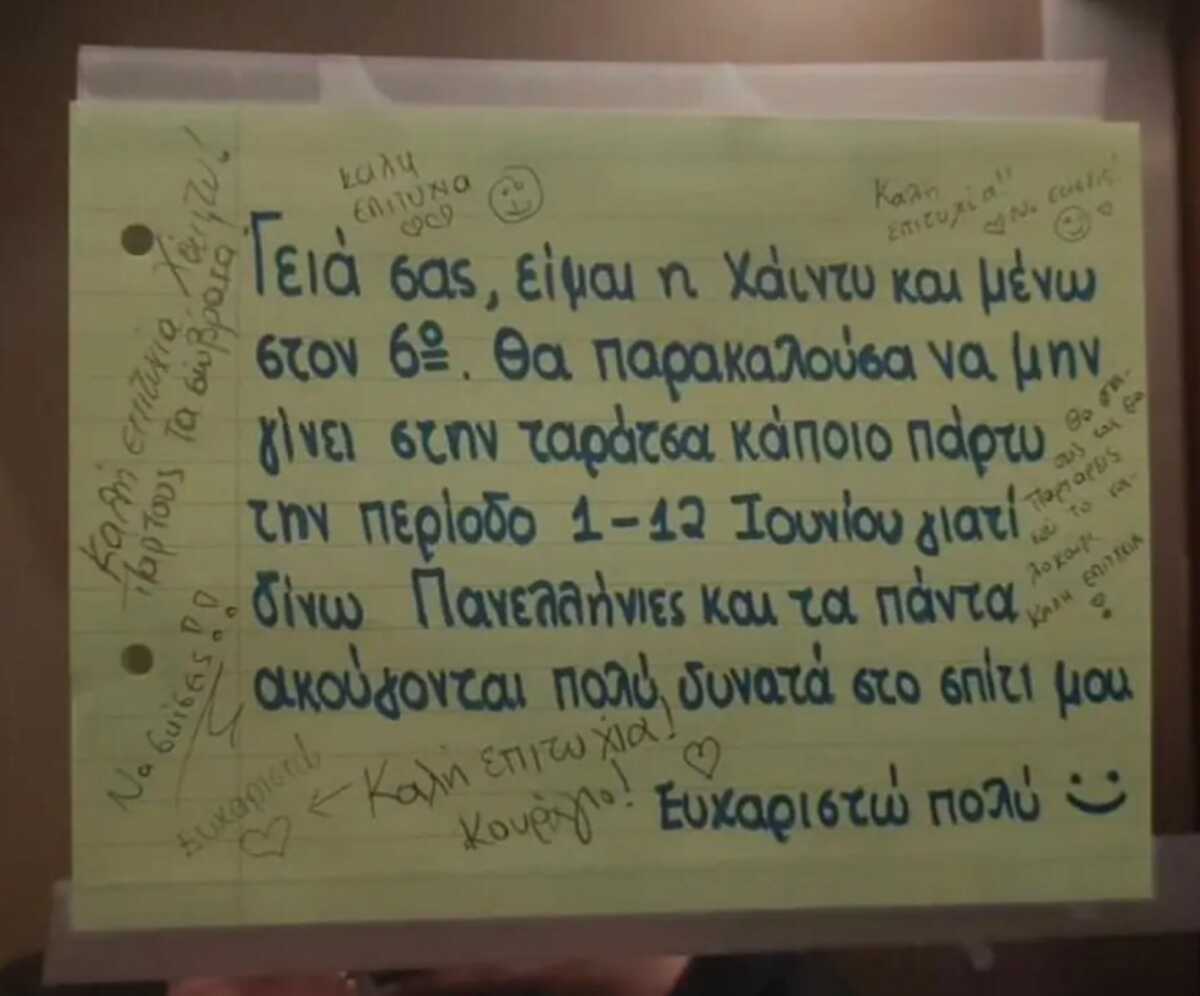 καλη
επιτυχια
Καλη
επιτυχία!!
Να σκίσεις!
Γειά σας, είμαι η Χάιντυ και μένω
στον 6º. Θα παρακαλούσα να μην
γίνει στην ταράτσα κάποιο πάρτυ
την περίοδο 1-12 Ιουνίου γιατί
δίνω Πανελλήνιες και τα πάντα
ακούγονται πολύ δυνατά στο σπίτι μου
Ευχαριστώ πολύ
Καλή επιτυχία Χάιντυ!
Παρτους τα σώβρακα
Να σκίσεις!!
Ευχαριστώ
← Καλή επιτυχία!
Κουράγιο!
παρτάρεις
ΚΑΛΗ ΕΠΙΤΥΧΙΑ